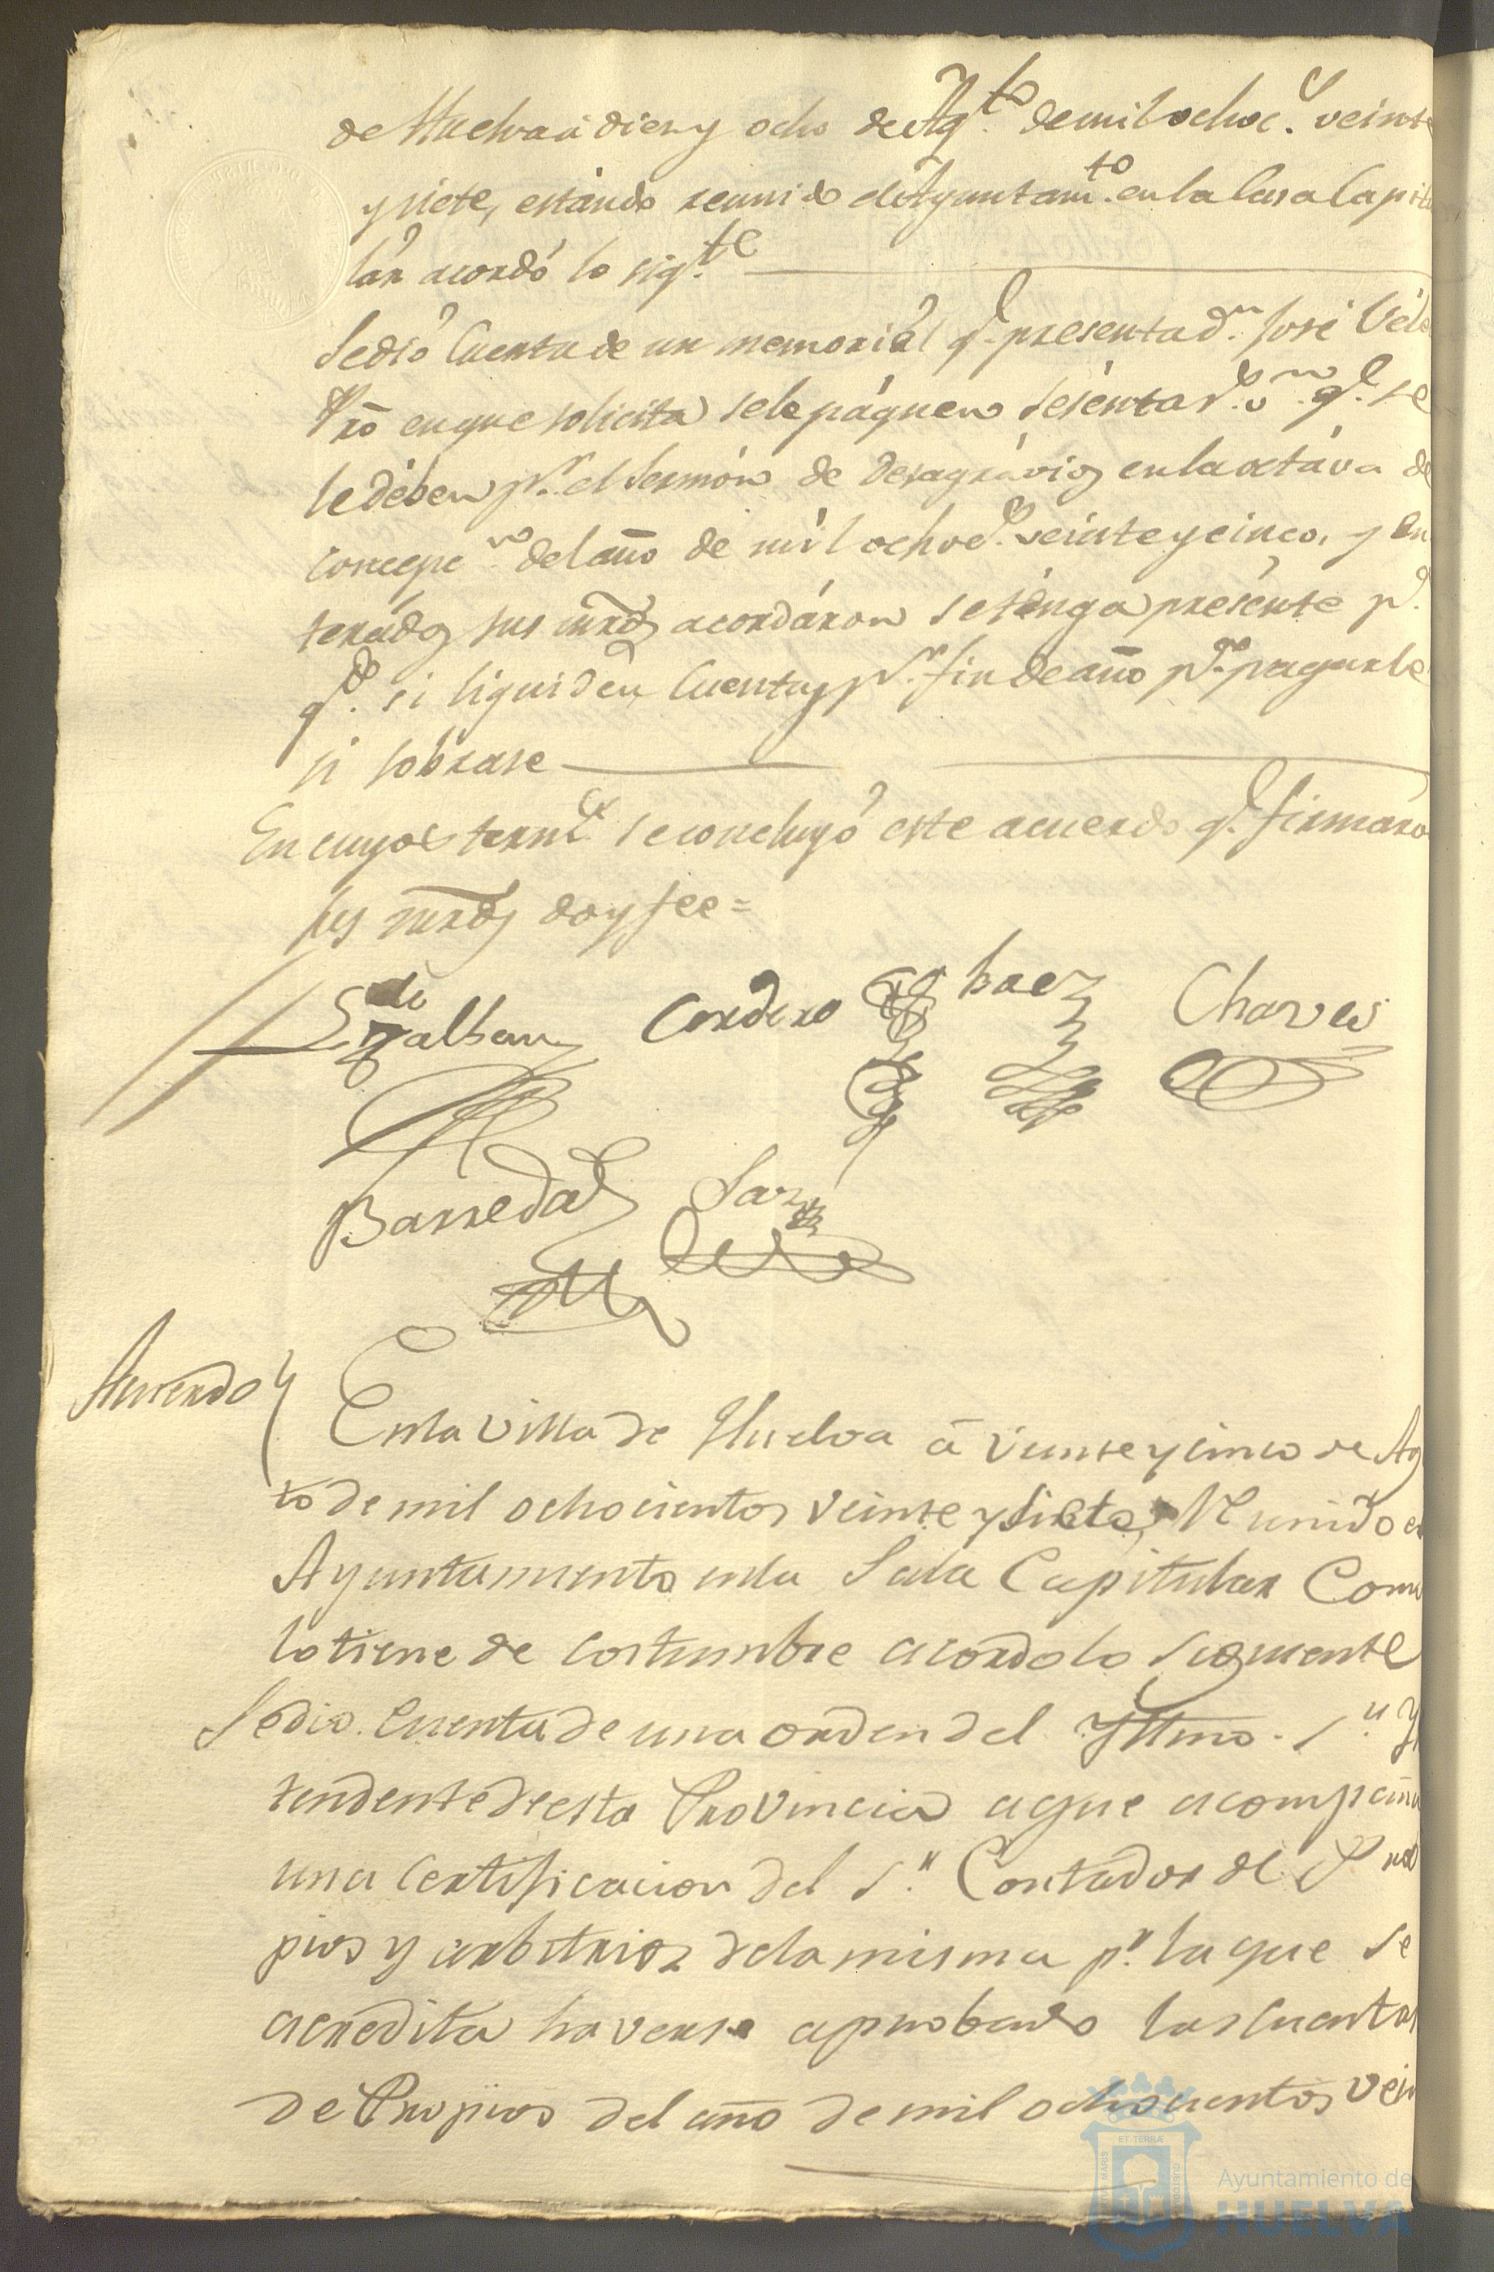 de Huelva á diez y ocho de Ag.to de mil ochoc.s veinte
y siete, estándo reunido el Ayuntam.to en la Casa Capitu
lár acordó lo sig.te
Se dió Cuenta de un memoriál q.e presenta d.n José Véle
Pro en que solicita se le páguen sesénta r.s v.n q.e se
le dében p.r el Sermón de desagrávios en la octáva de
concepc.n del año de mil ochoc.s veinte y cinco, y en
terádos sus mrds acordáron se ténga presénte p.a
q.do si liquiden Cuentas p.r fin de año p.a pagarle
si sobrase
En cuyos term.s se concluyó este acuerdo q.e firmaro
sus mrds doy fee=
Cordero Baez Chaves
Barreda Saz
Acuerdo
En la Villa de Huelva á veinte y cinco de Ag
to de mil ochocientos veinte y siete, Reunido el
Ayuntamiento en la Sala Capitular Como
lo tiene de costumbre acordo lo siguiente
Se dio Cuenta de una orden del Yltmo. S.r Yn
tendente de esta Provincia a que acompaña
una Certificacion del S.r Contador de Pro
pios y arbitrios de la misma p.r la que se
acredita haverse aprobado las Cuentas
de Propios del año de mil ochocientos vein
MARIS
ET TERRÆ
CUSTODIA
Ayuntamiento de
HUELVA